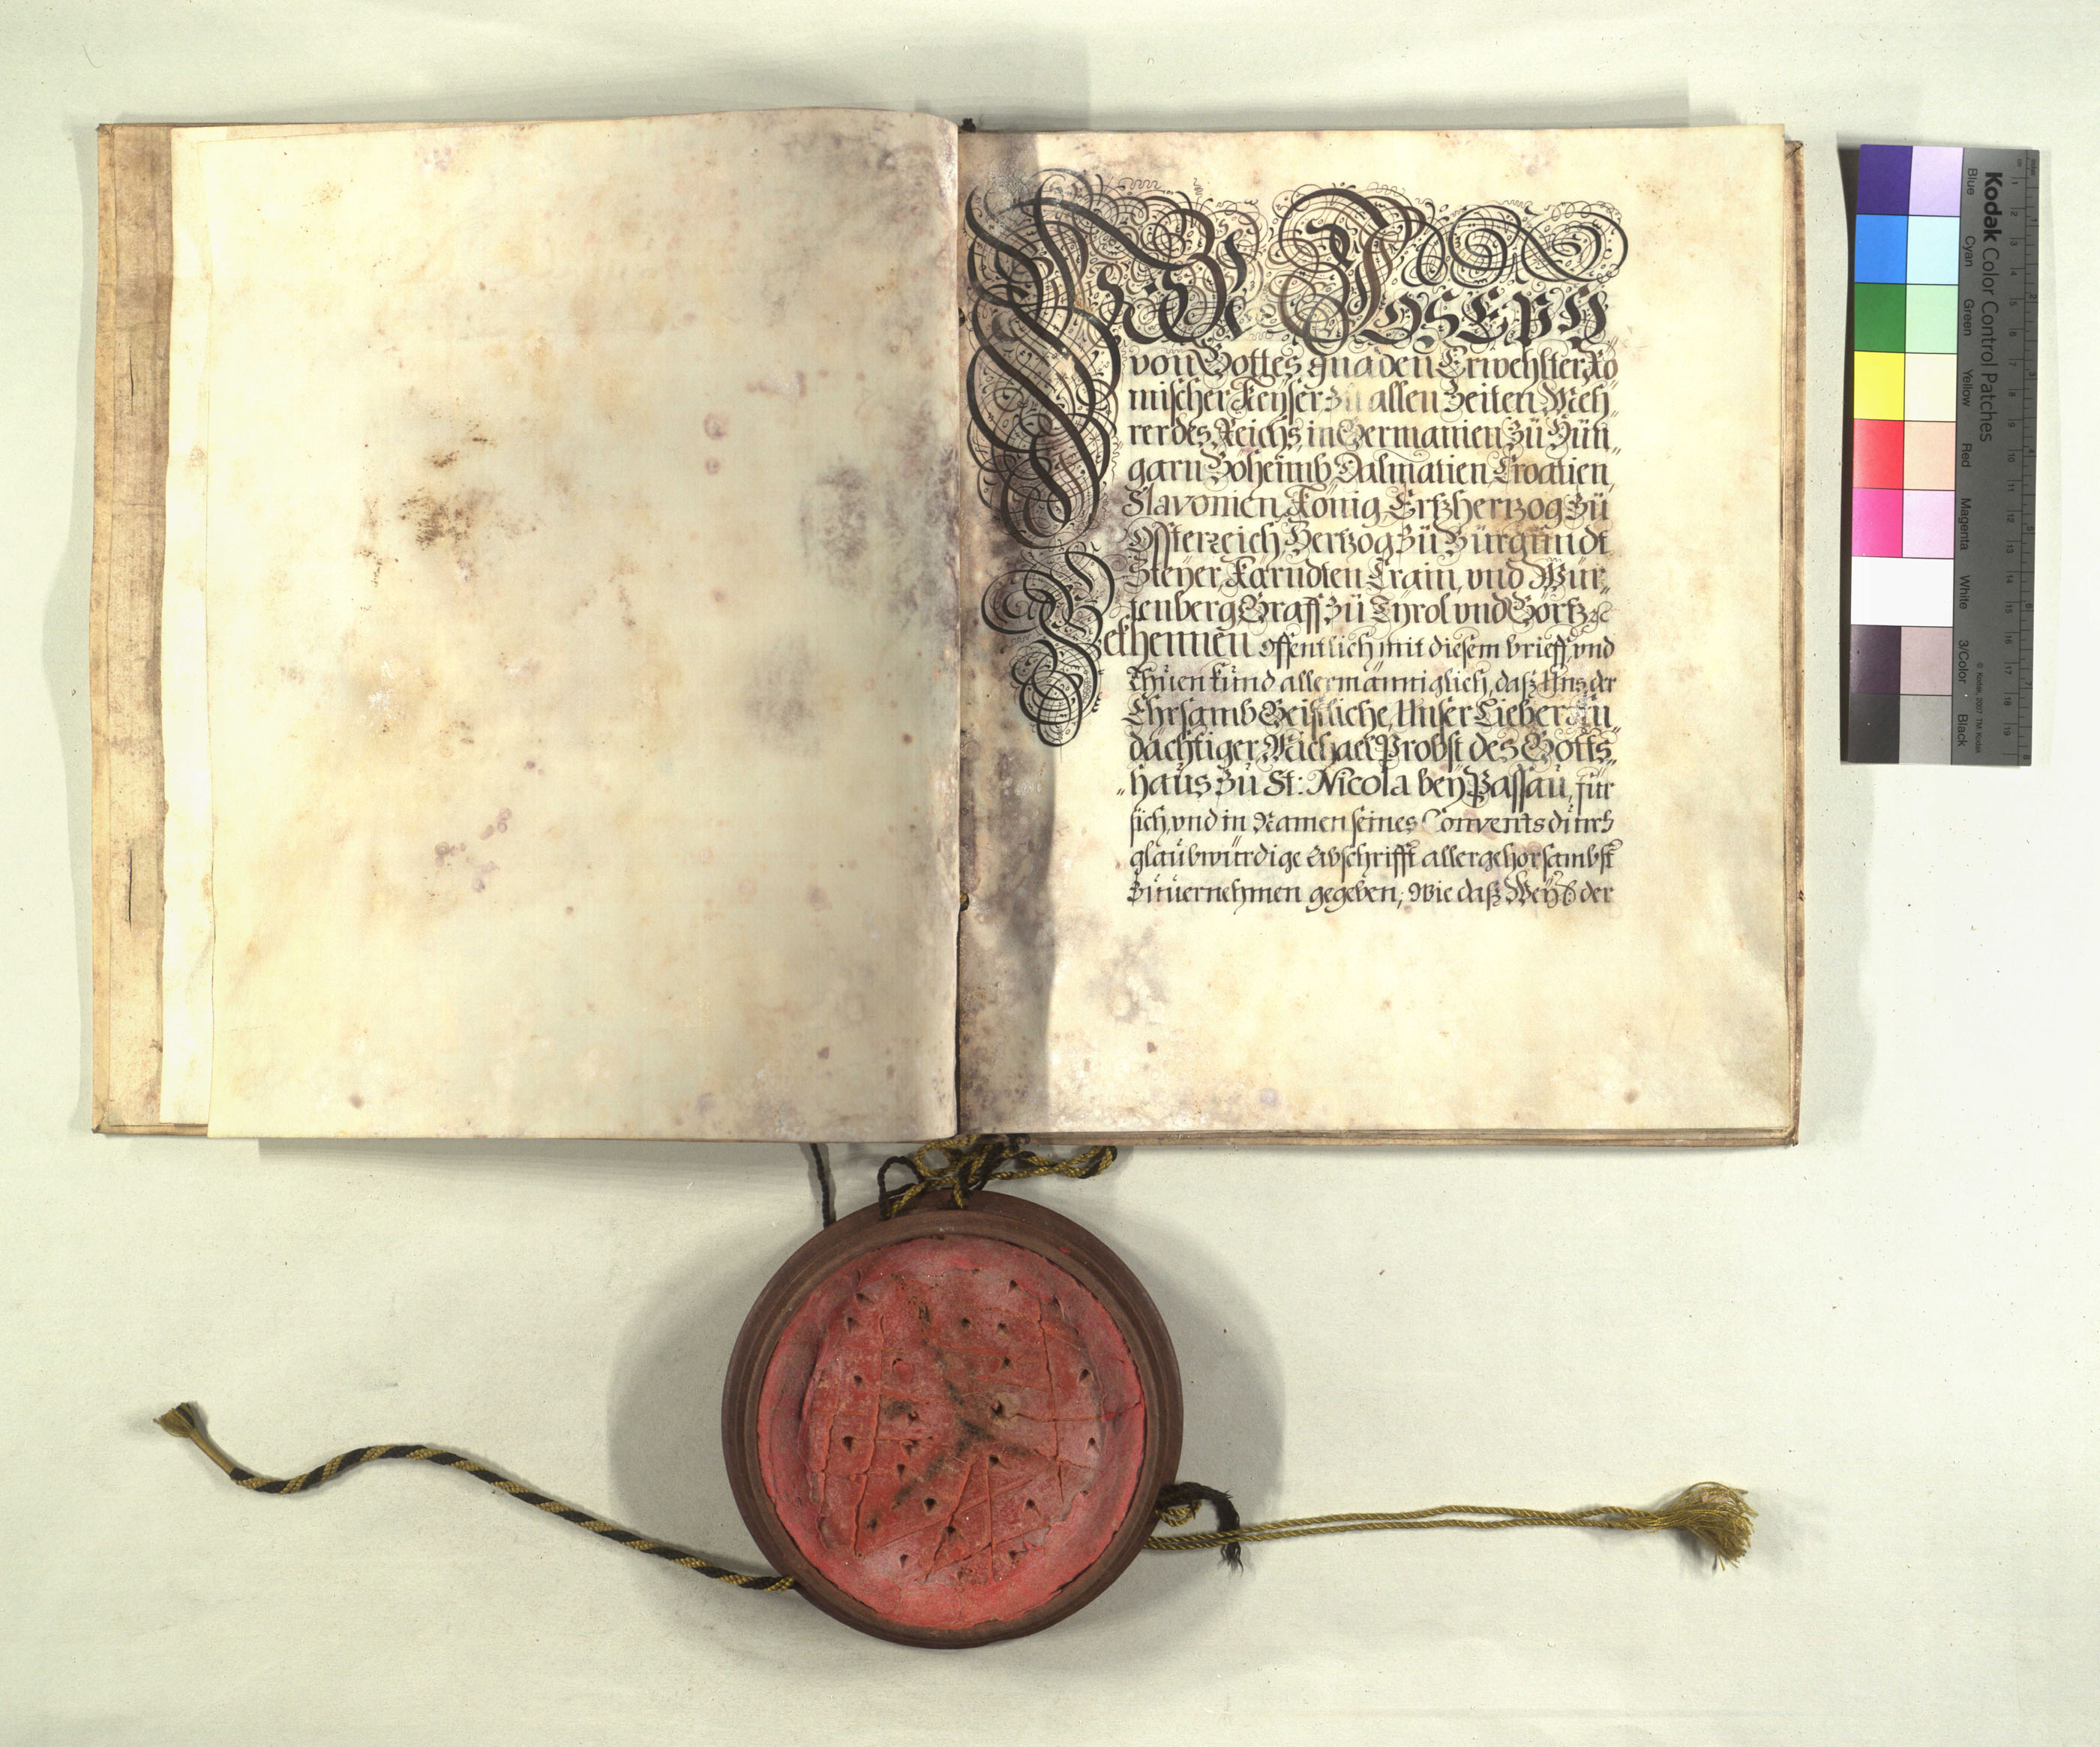 Wir Joseph
von Gottes gnaden Erwehlter Rö
mischer Keyser zu allen Zeiten Meh„
rer des Reichs, in Germanien zü Hün„
garn Boheimb Dalmatien, Croatien,
Slavonien, König, Ertzhertzog zü
Össterreich, Hertzog zü Bürgündt
Steyer, Karndten Crain, vnd Wür„
tenberg Graff zü Tyrol vnd Görtz ꝛc
Bekhennen offentlich mit diesem brieff, vnd
Thüen künd allermänniglich, daß Uns, der
Ehrsamb Geistliche, Unser Lieber An„
dächtiger, Michael Probst des Gotts„
„haüs zü St: Nicola bey Passaü, für
sich, vnd in Namen seines Convents dürch
glaübwürdige Abschrifft allergehorsambst
züvernehmen gegeben, wie daß Weyl: der
Kodak Color Control Patches
Blue Cyan Green Yellow Red Magenta White 3/Color Black
© Kodak, 2007 TM: Kodak
1 2 3 4 5 6 7 8 9 10 11 12 13 14 15 16 17 18 19